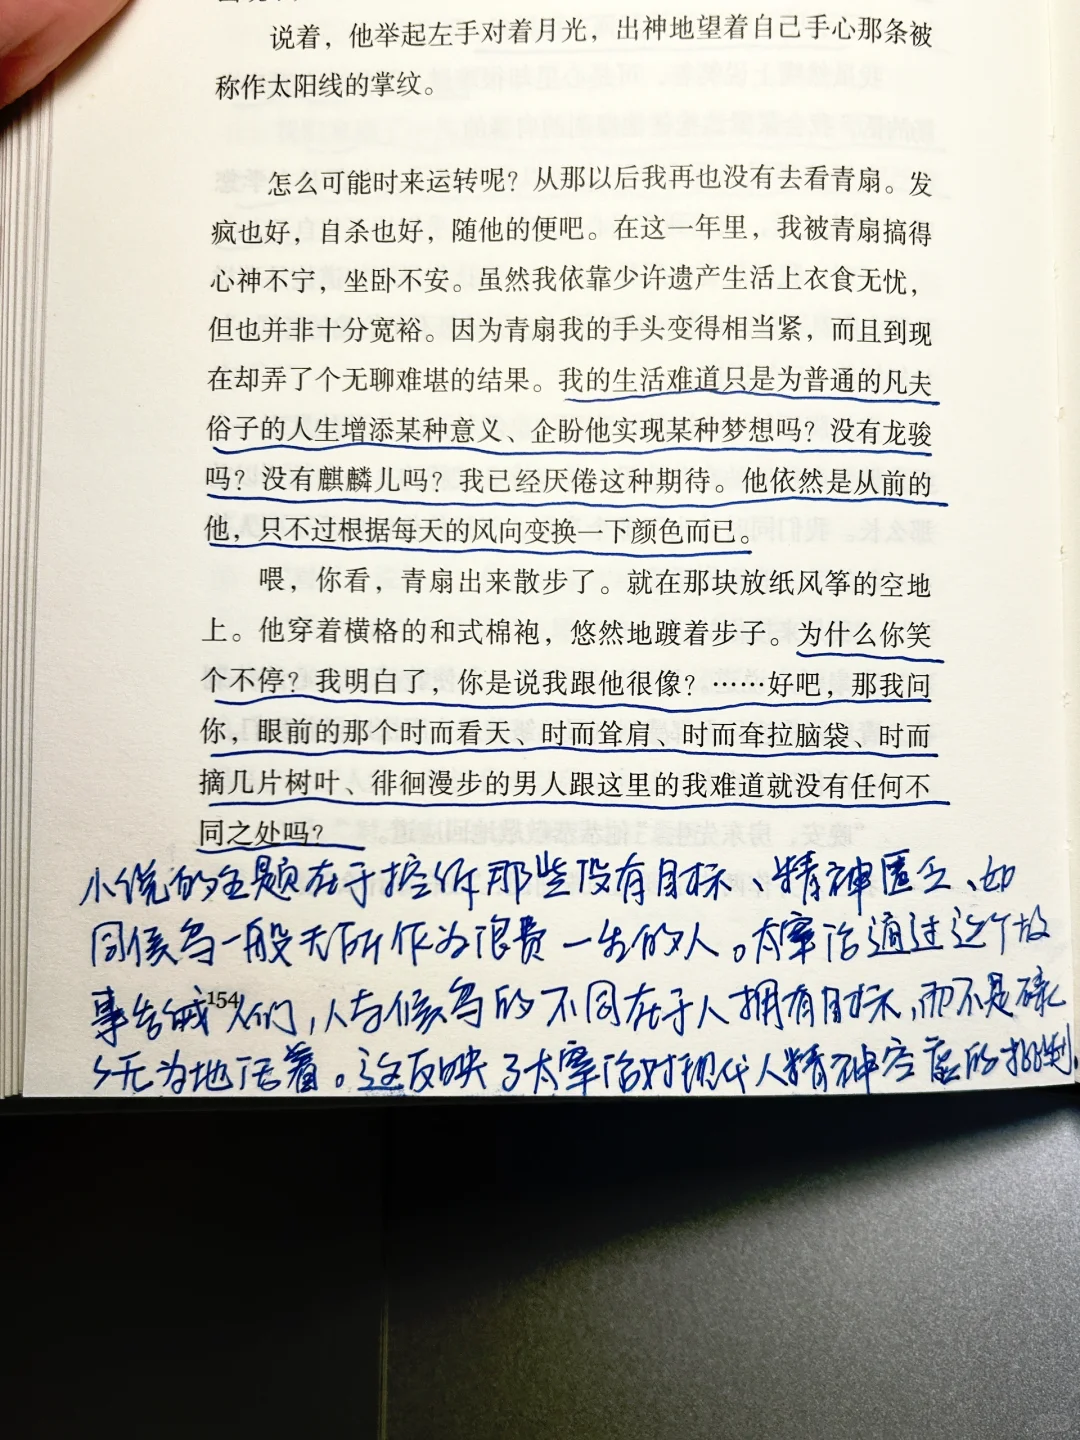 说着，他举起左手对着月光，出神地望着自己手心那条被
称作太阳线的掌纹。
怎么可能时来运转呢？从那以后我再也没有去看青扇。发
疯也好，自杀也好，随他的便吧。在这一年里，我被青扇搞得
心神不宁，坐卧不安。虽然我依靠少许遗产生活上衣食无忧，
但也并非十分宽裕。因为青扇我的手头变得相当紧，而且到现
在却弄了个无聊难堪的结果。我的生活难道只是为普通的凡夫
俗子的人生增添某种意义、企盼他实现某种梦想吗？没有龙骏
吗？没有麒麟儿吗？我已经厌倦这种期待。他依然是从前的
他，只不过根据每天的风向变换一下颜色而已。
喂，你看，青扇出来散步了。就在那块放纸风筝的空地
上。他穿着横格的和式棉袍，悠然地踱着步子。为什么你笑
个不停？我明白了，你是说我跟他很像？……好吧，那我问
你，眼前的那个时而看天、时而耸肩、时而耷拉脑袋、时而
摘几片树叶、徘徊漫步的男人跟这里的我难道就没有任何不
同之处吗？
小说的主题在于控诉那些没有目标、精神匮乏、如
同候鸟一般无所作为浪费一生的人。太宰治通过这个故
事告诫人们，人与候鸟的不同在于人拥有目标，而不是碌
碌无为地活着。这反映了太宰治对现代人精神空虚的批判。
154